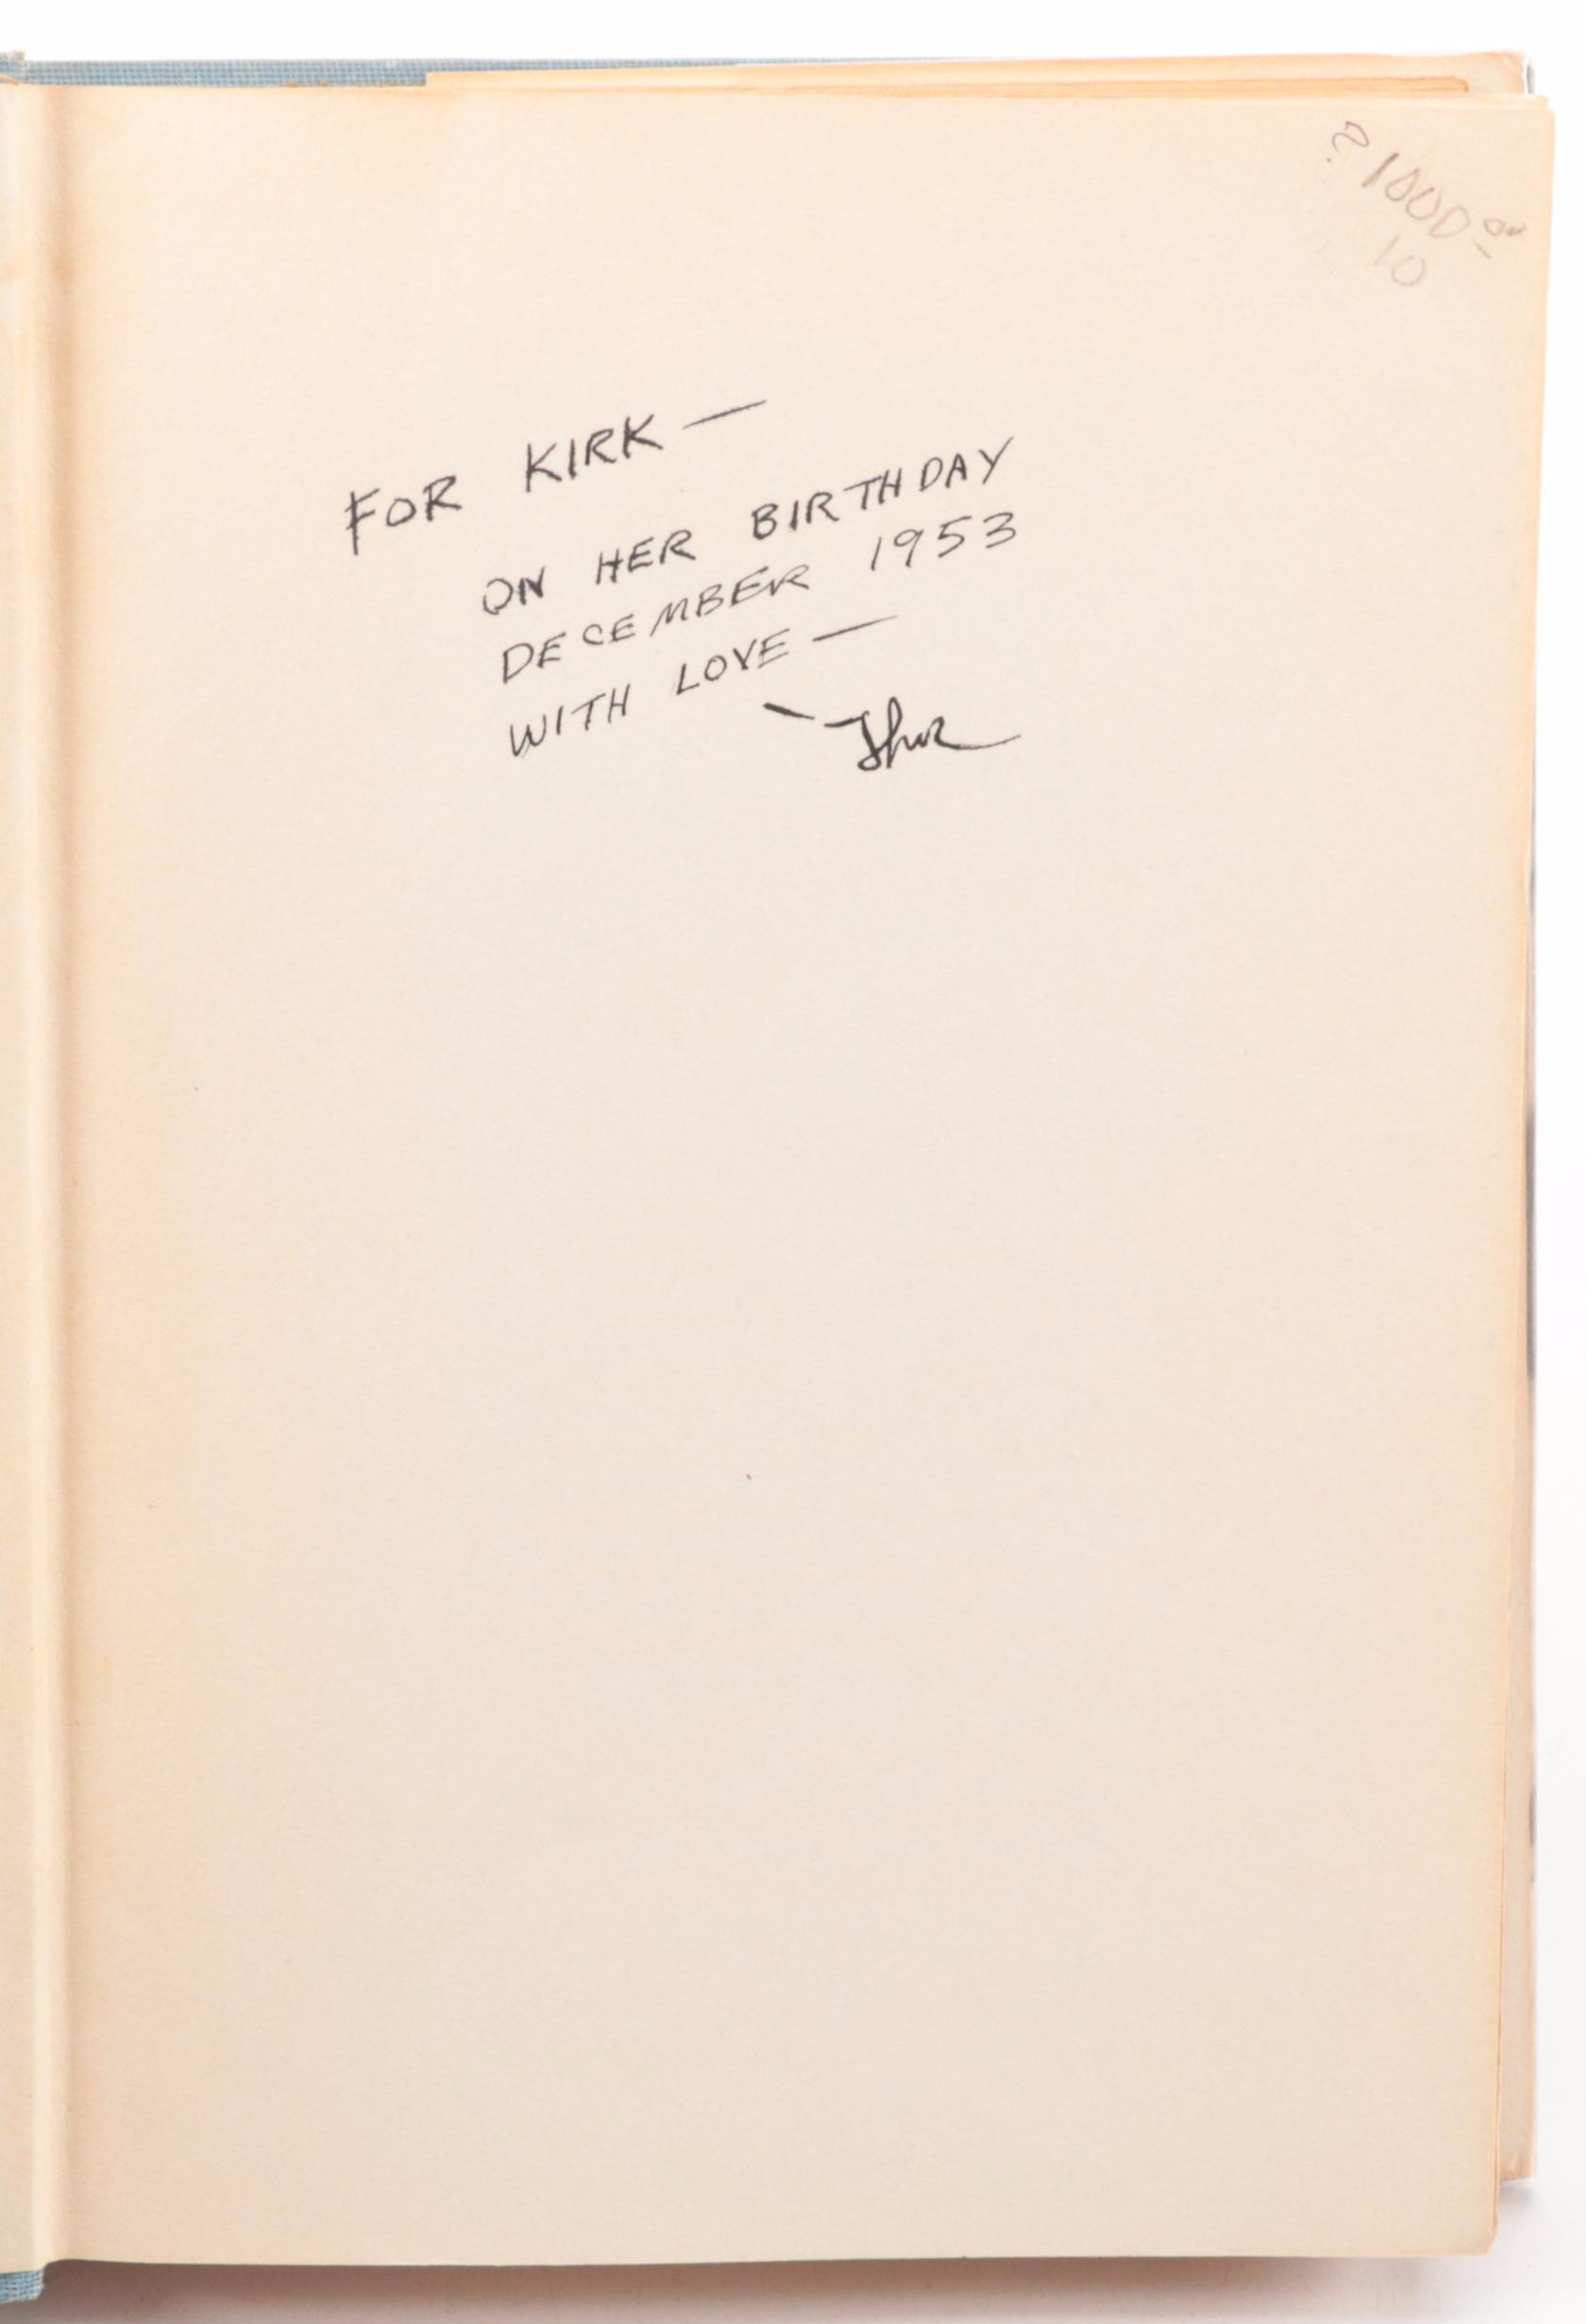 ? 1000
10
FOR KIRK —
ON HER BIRTHDAY
DECEMBER 1953
WITH LOVE —